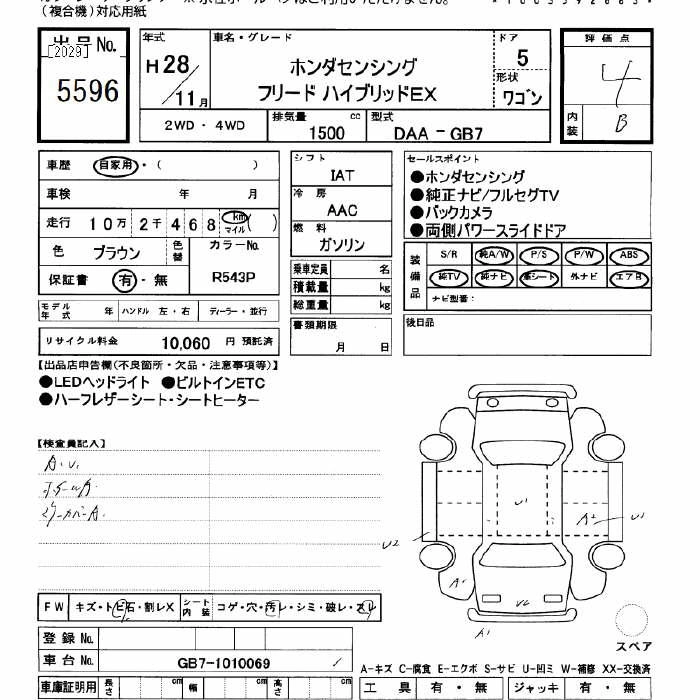 (複合機)対応用紙
出品No.
[2029]
5596
年式
H28
11月
車名・グレード
ホンダセンシング
フリード ハイブリッドEX
ドア
5
形状
ワゴン
2WD・4WD
排気量 cc
1500
型式
DAA-GB7
評価点
4
内装
B
車歴 自家用・( )
車検 年 月
走行 10万2千468 km マイル ( )
色 ブラウン 色替
カラーNo.
R543P
保証書 有・無
モデル年式 年 ハンドル 左・右 ディーラー・並行
リサイクル料金 10,060 円 預託済
シフト
IAT
冷房
AAC
燃料
ガソリン
乗車定員 名
積載量 kg
総重量 kg
書類期限
月 日
セールスポイント
●ホンダセンシング
●純正ナビ/フルセグTV
●バックカメラ
●両側パワースライドドア
装備品
S/R 純A/W P/S P/W ABS
純TV 純ナビ 革シート 外ナビ エアB
ナビ型番:
後日品
【出品店申告欄(不良箇所・欠品・注意事項等)】
●LEDヘッドライト ●ビルトインETC
●ハーフレザーシート・シートヒーター
【検査員記入】
A.U.
U1
A2
U3
U2
A1
A1
FW キズ・トビ石・割レX シート内装 コゲ・穴・汚レ・シミ・破レ・スレ
登録No.
車台No. GB7-1010069
車庫証明用 長さ cm 幅 cm 高さ cm
スペア
A-キズ C-腐食 E-エクボ S-サビ U-凹ミ W-補修 XX-交換済
工具 有・無 ジャッキ 有・無